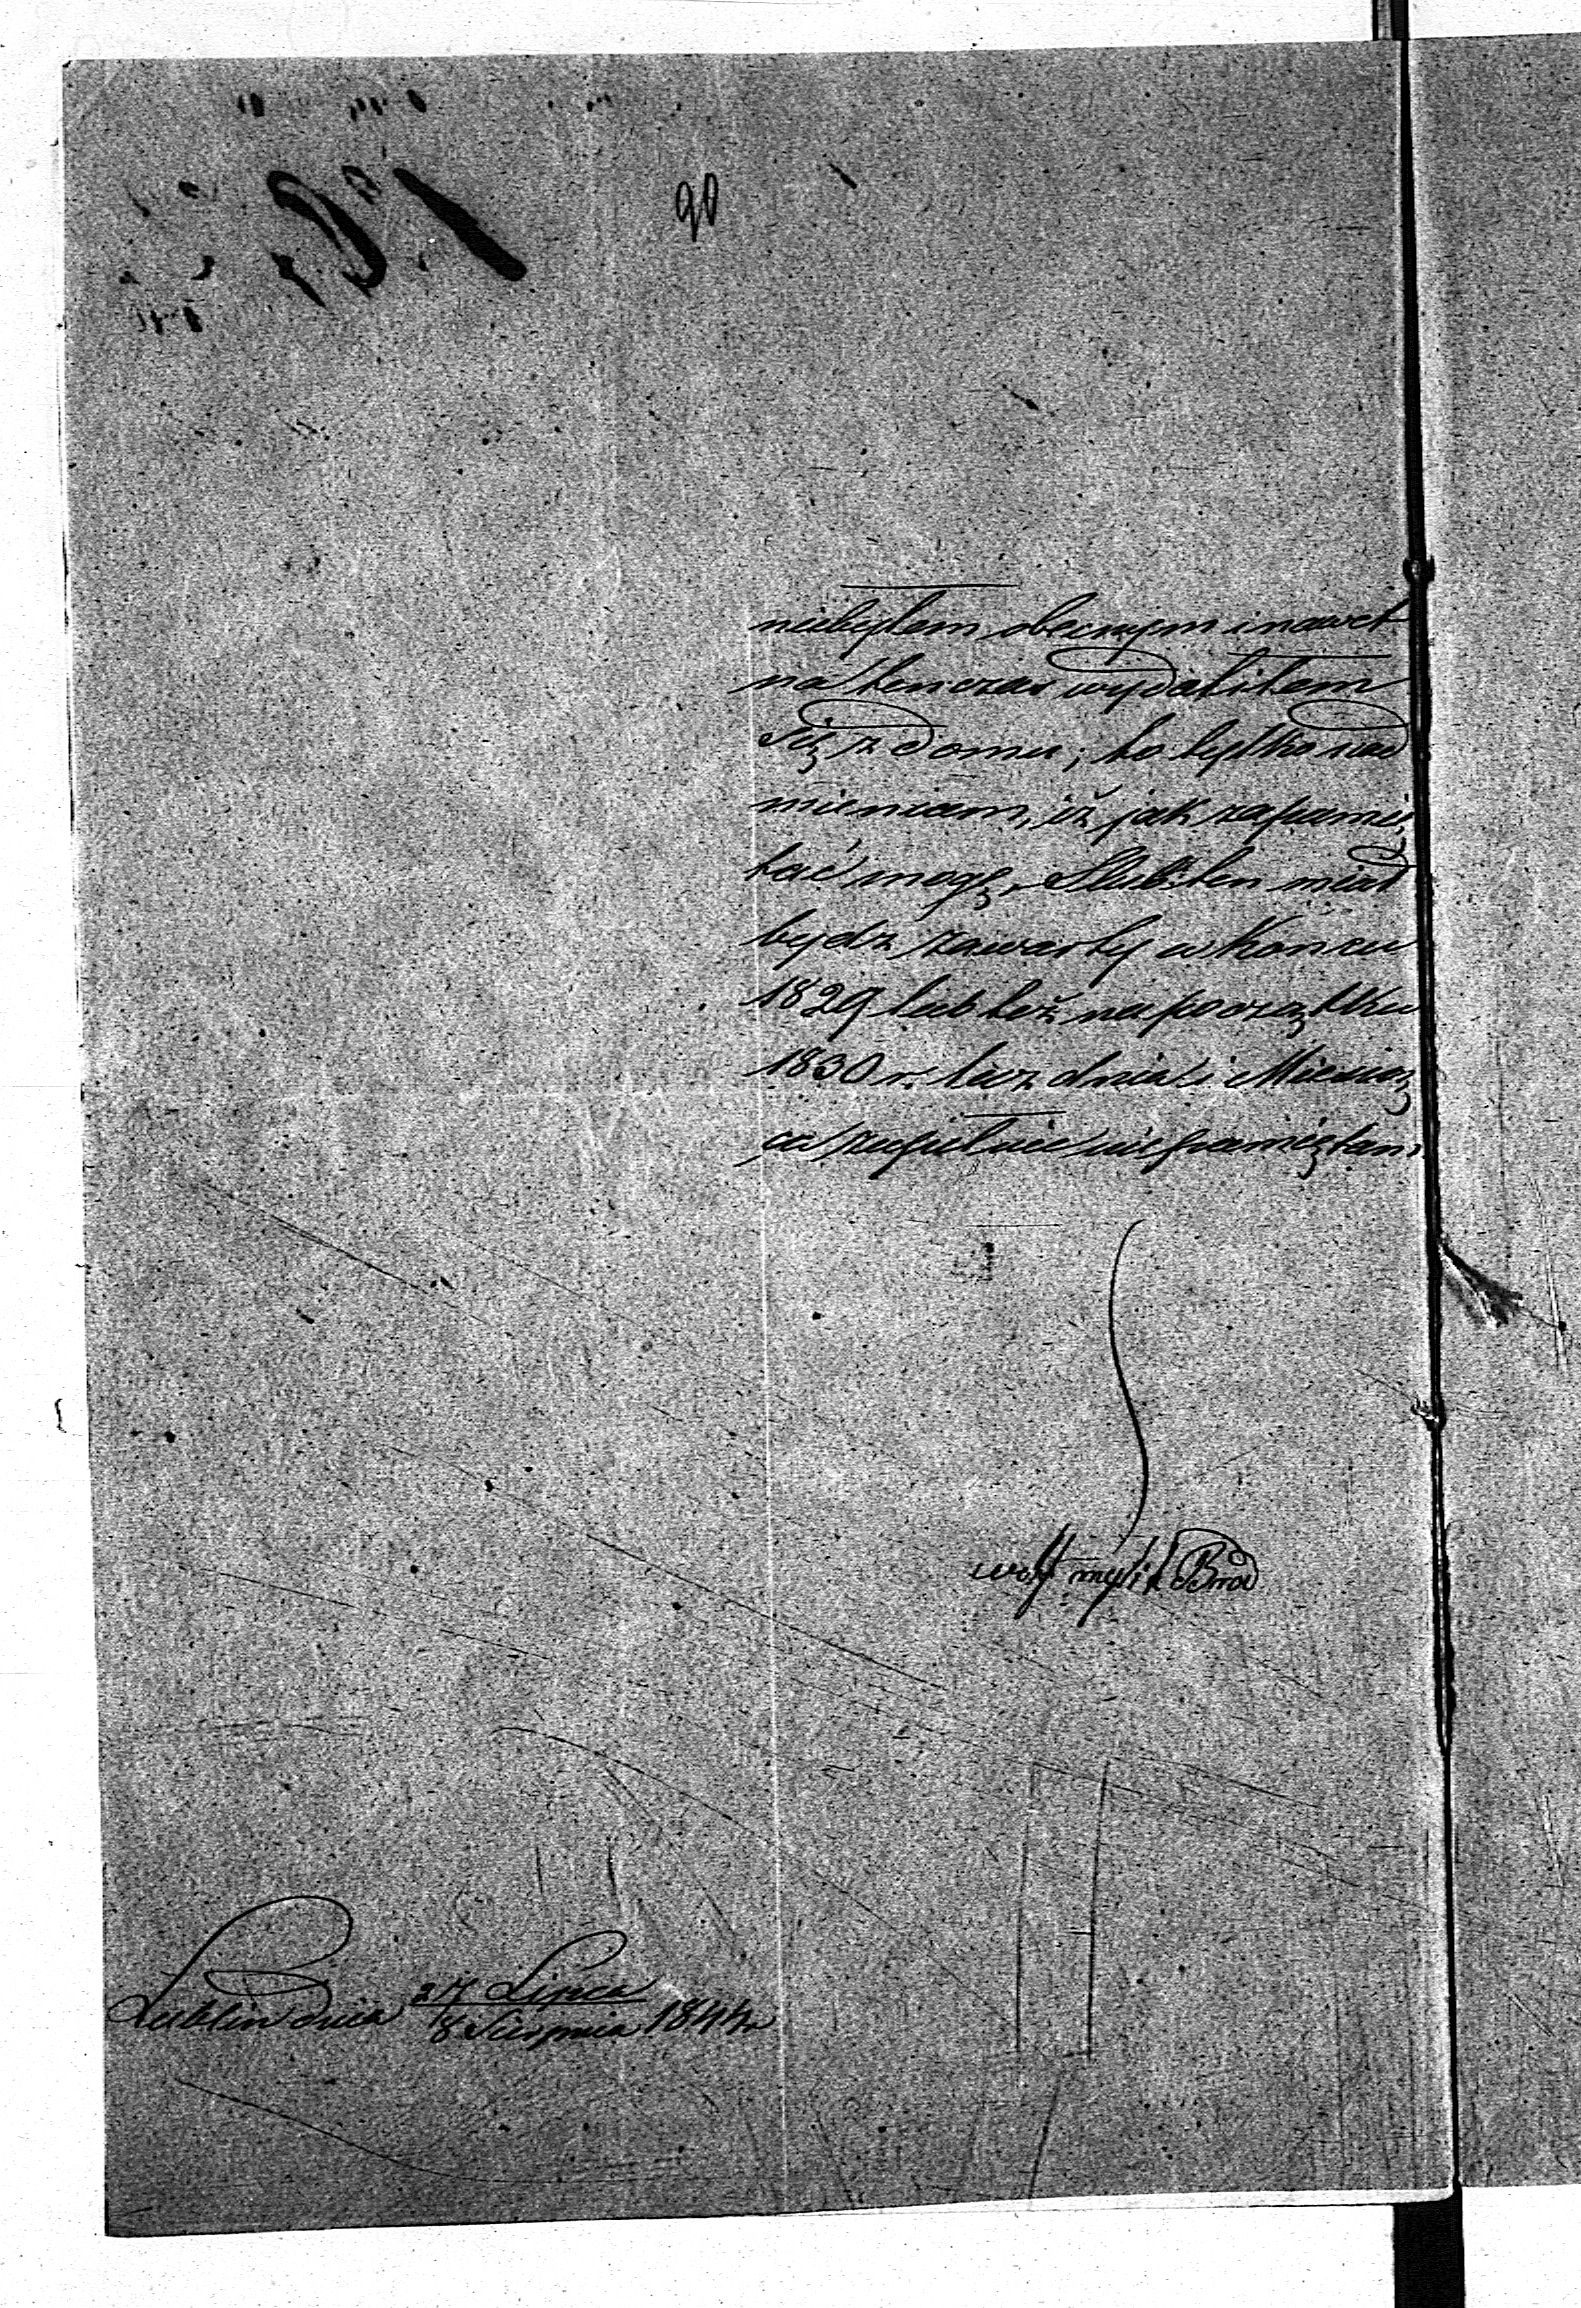 90
niebyłem obecnym i nawet
na tenczas wydaliłem
się z domu; to tylko nad
mieniam, iż jak zapamię
tać mogę, Slub ten miał
bydz zawarty w Koncu
1829 lub też na początku
1830 r. lecz dnia i Miesią
ca zupełnie niepamiętam.
Wolf Brod
Lublin dnia 27 Lipca
8 Sierpnia 1844 r